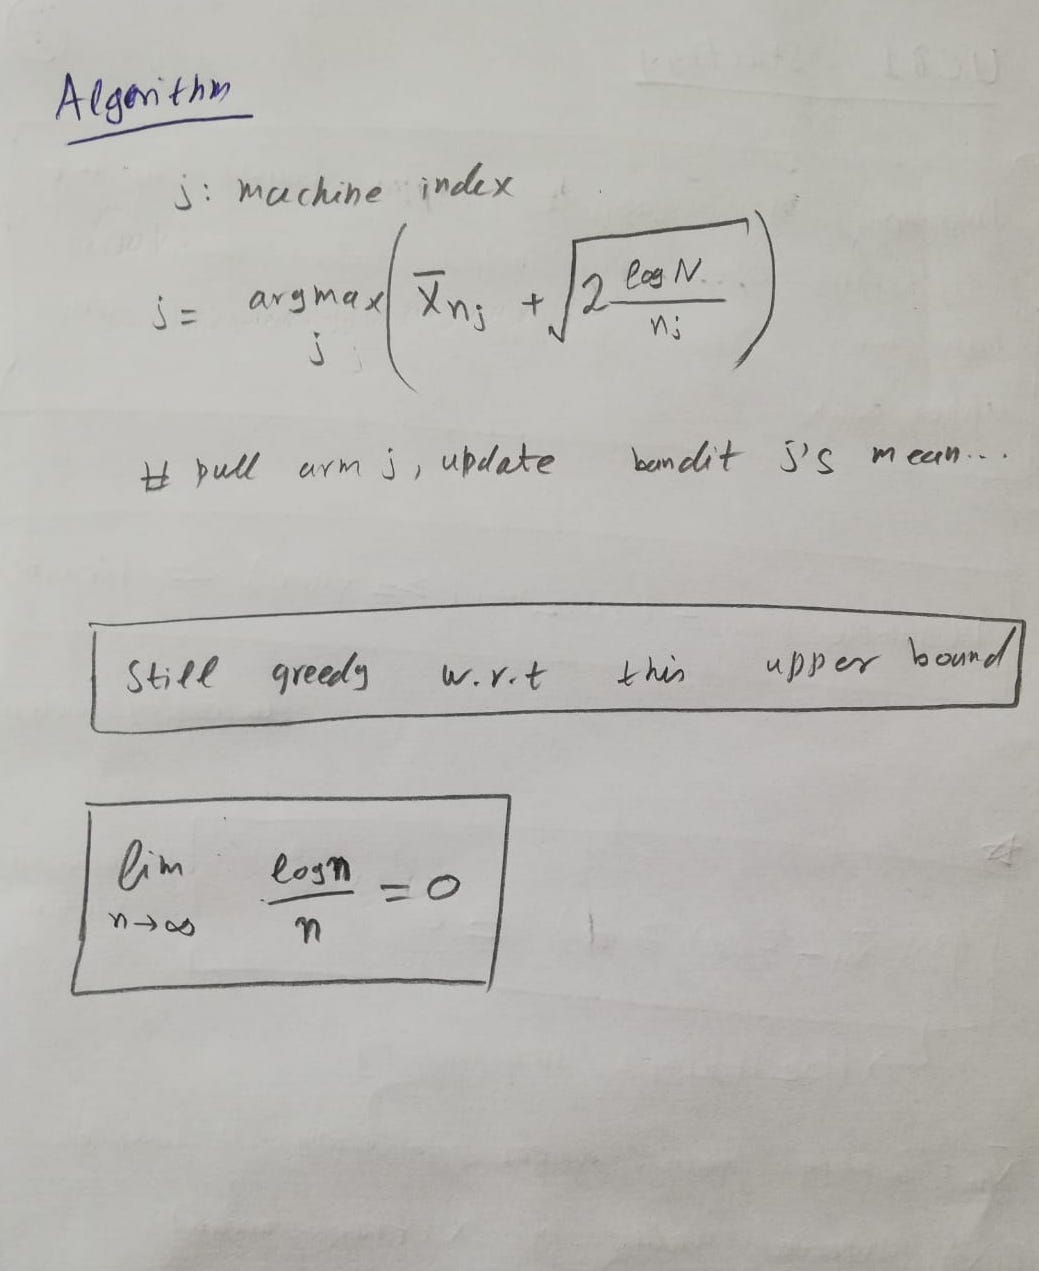 Algorithm
j: machine index
j = argmax_j ( X̄_{nj} + √(2 log N / nj) )
# pull arm j, update bandit j's mean...
Still greedy w.r.t this upper bound
lim_{n→∞} log n / n = 0